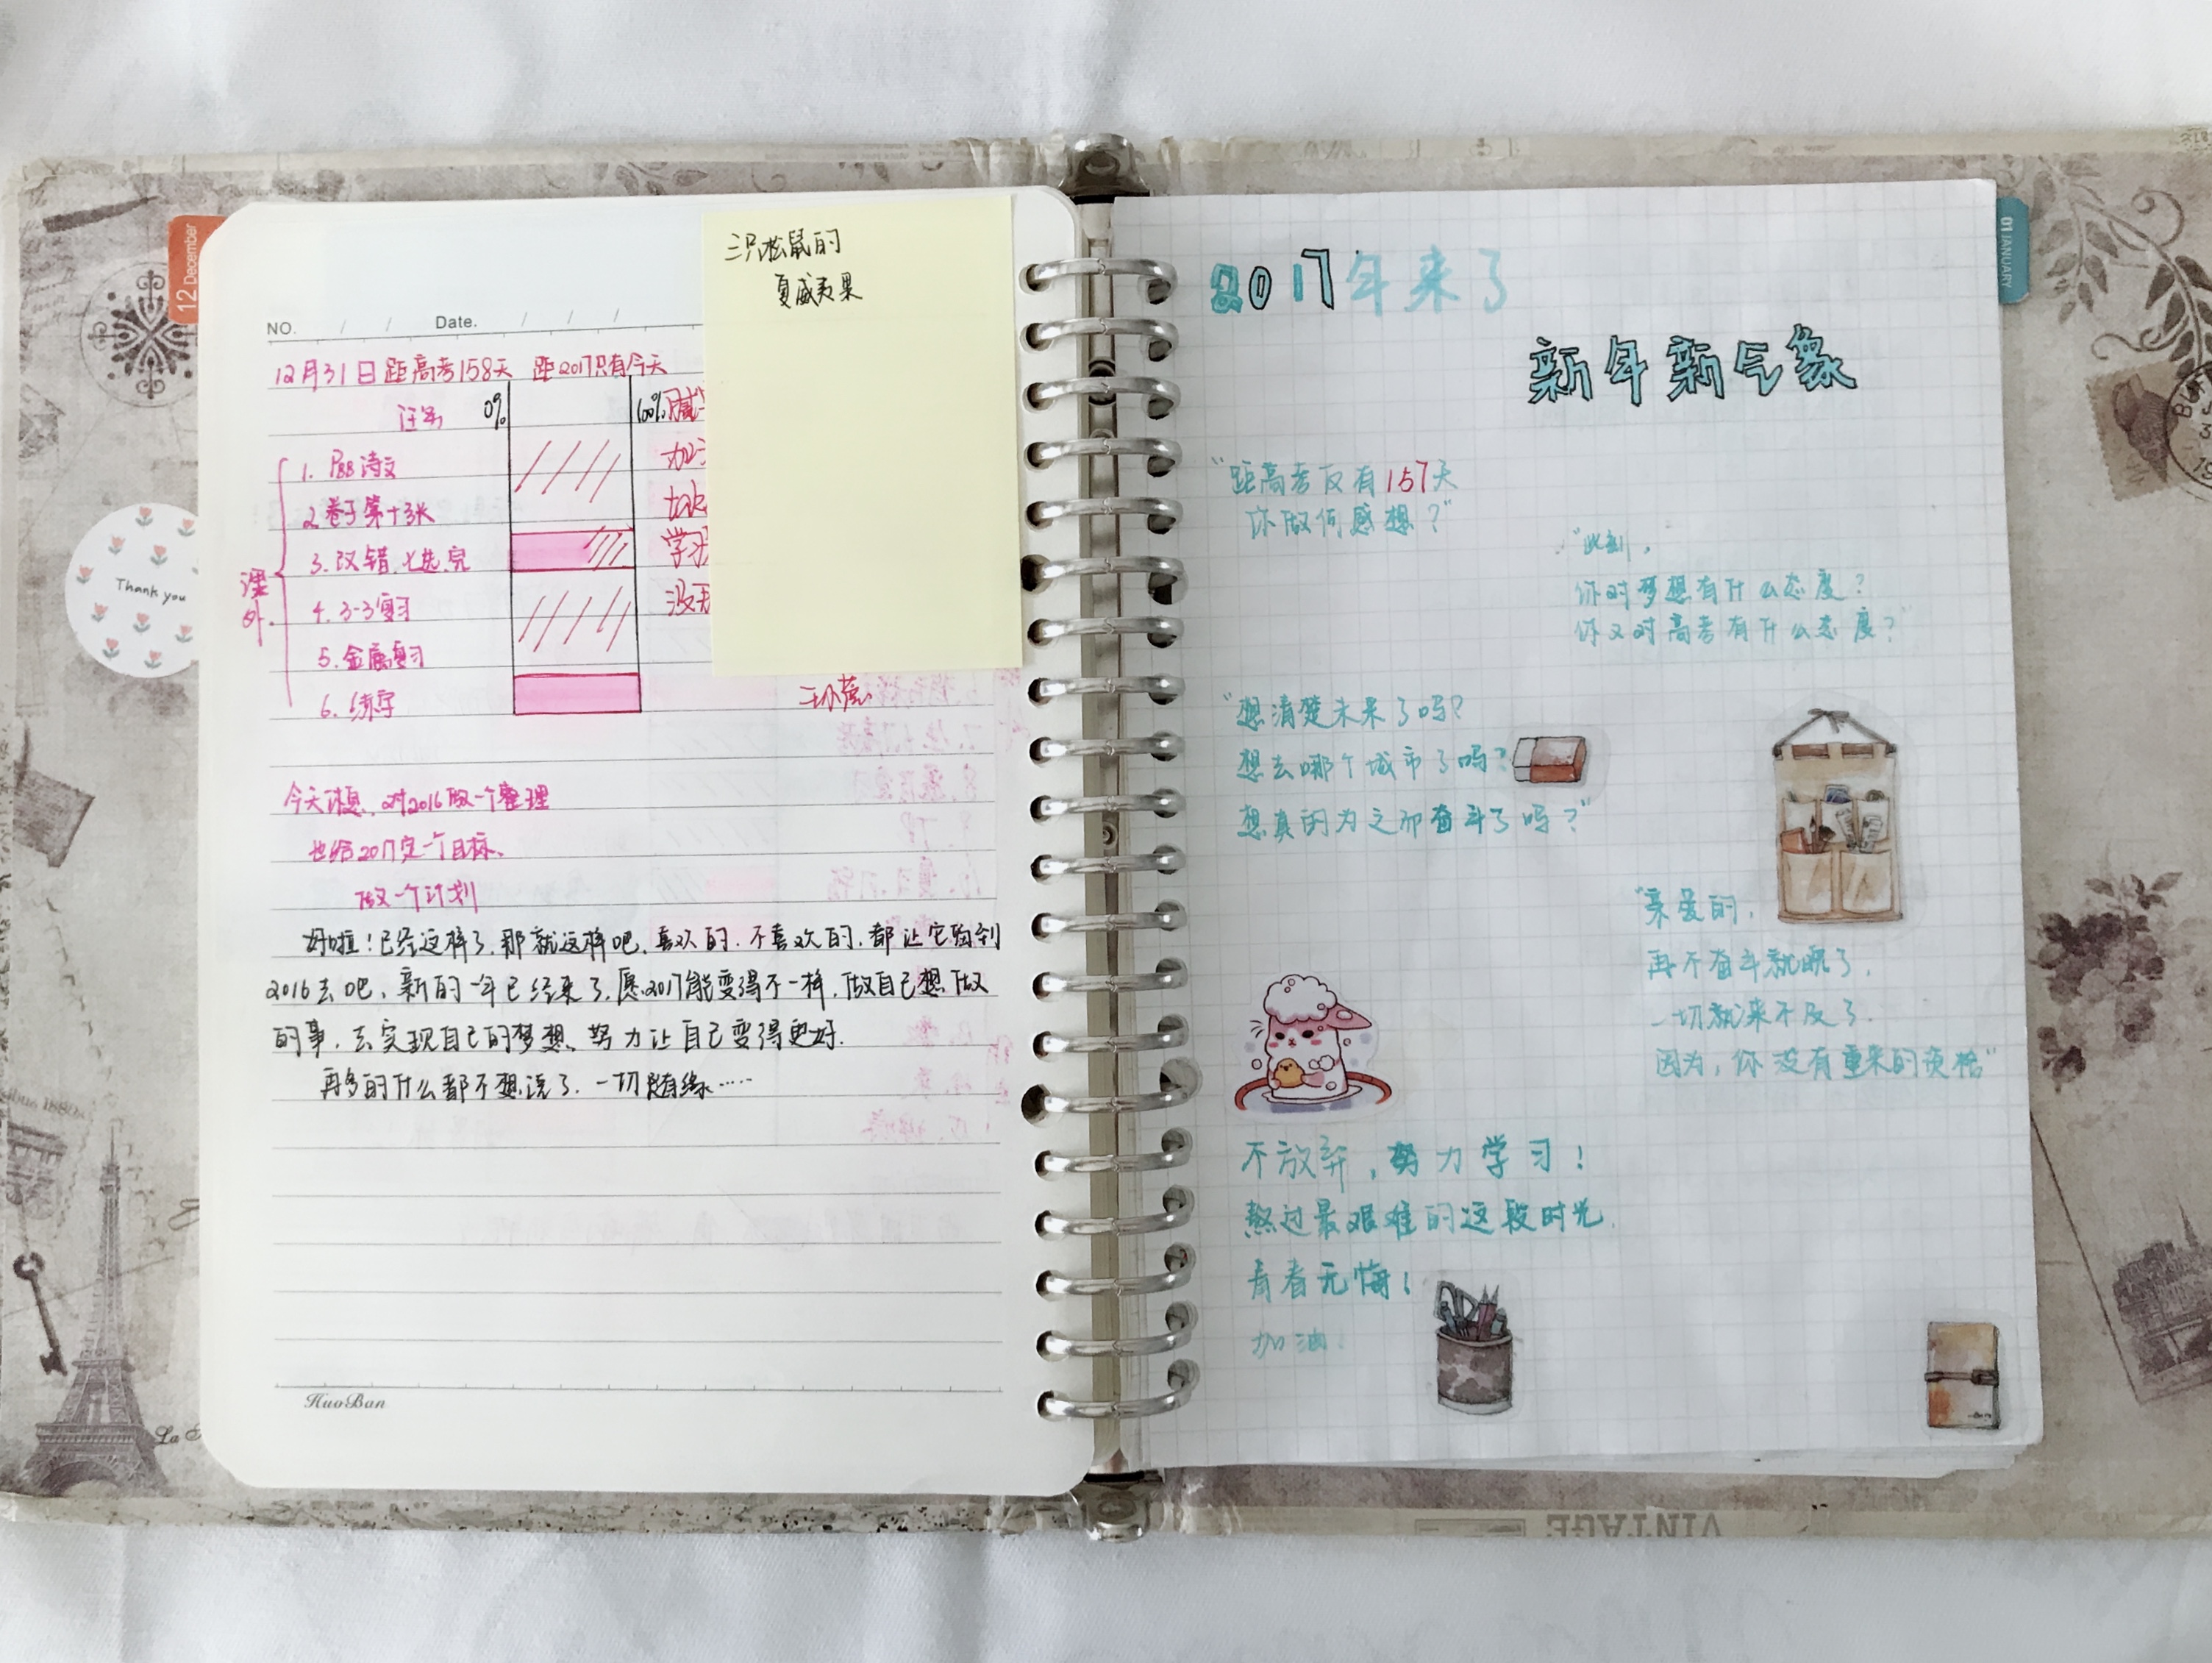 12 December
NO. / / Date. / / /
12月31日 距高考158天 距2017只有今天
任务 0% 100%
课外
1. P88 诗文
2. 卷子第十三张
3. 改错.七选.完
4. 3-3复习
5. 金属复习
6. 练字
加
学习
没
三只松鼠的
夏威夷果
Thank you
今天休息、对2016做一个整理
也给2017定一个目标、
做一个计划
好啦！已经这样了.那就这样吧、喜欢的.不喜欢的.都让它
2016去吧、新的一年已经来了.愿2017能变得不一样.做自己想做
的事.去实现自己的梦想、努力让自己变得更好.
再多的什么都不想说了.一切随缘……
HuoBan
01 JANUARY
2017年来了
新年新气象
“距高考仅有157天
你做何感想？”
“此刻，
你对梦想有什么态度？
你又对高考有什么态度？”
“想清楚未来了吗？
想去哪个城市了吗？
想真的为之而奋斗了吗？”
“亲爱的，
再不奋斗就晚了，
一切就来不及了.
因为，你没有重来的资格”
不放弃，努力学习！
熬过最艰难的这段时光.
青春无悔！
加油.
VINTAGE